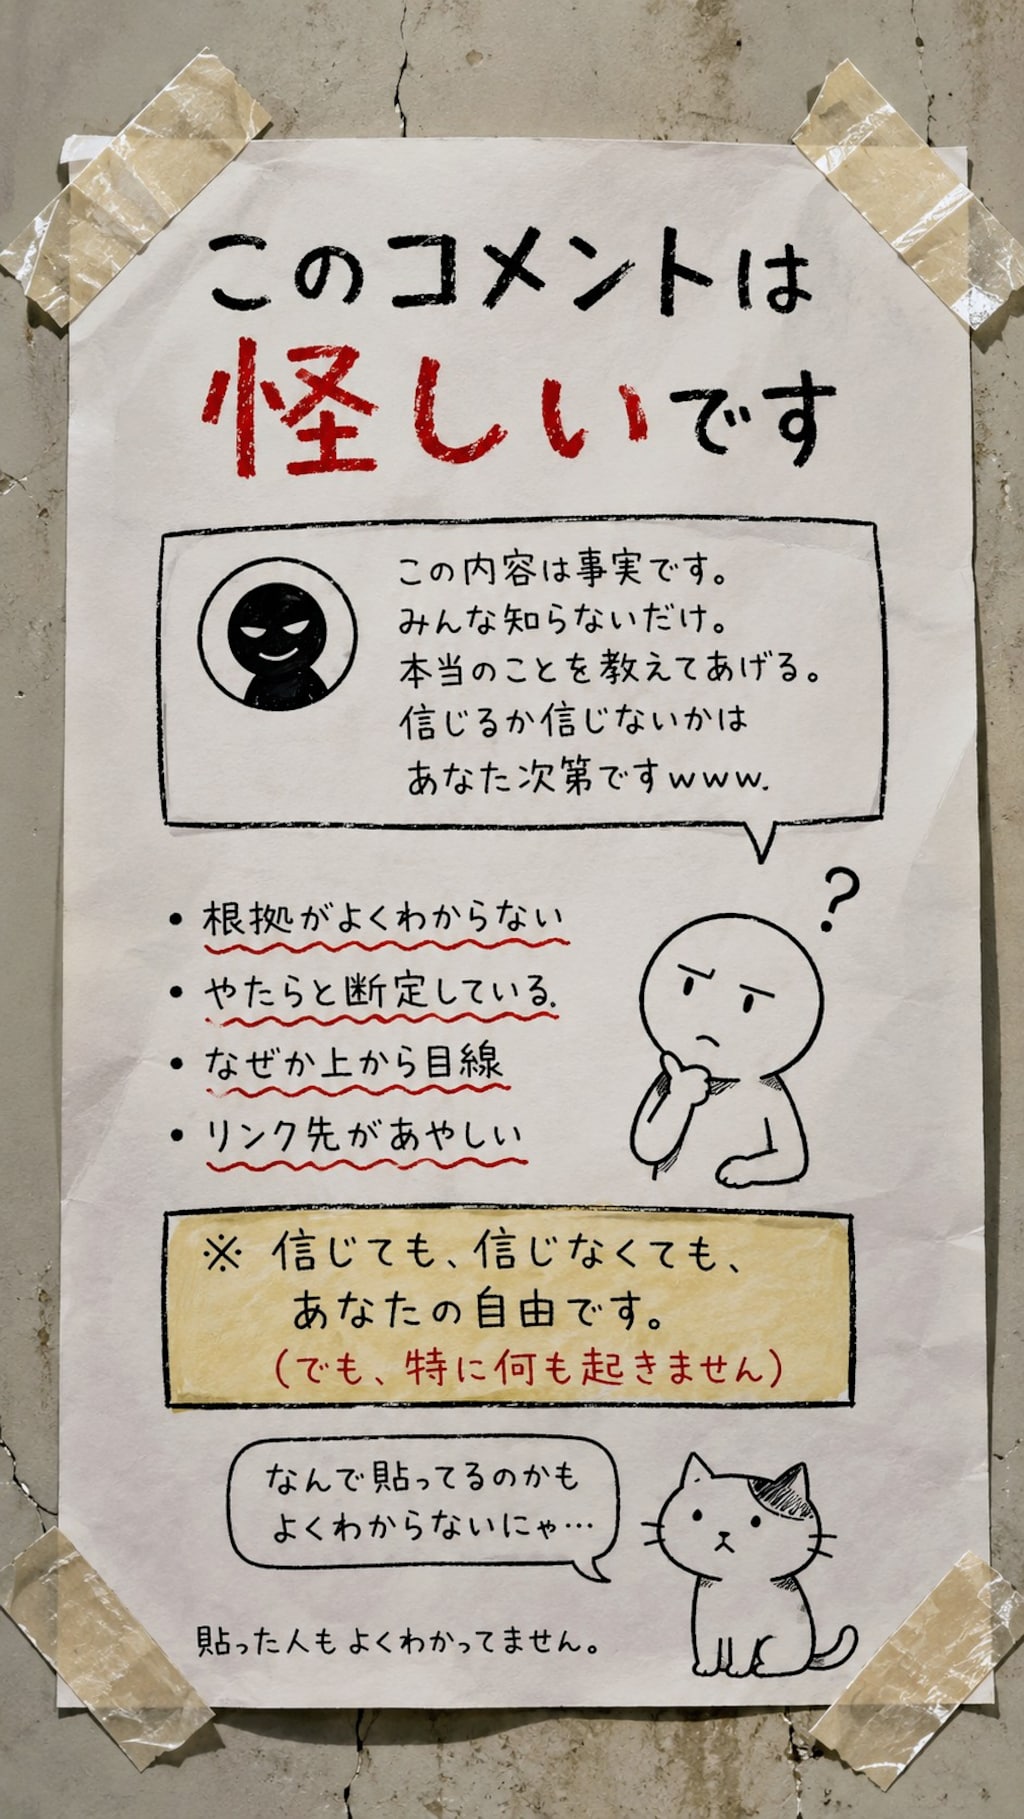 このコメントは
怪しいです
この内容は事実です。
みんな知らないだけ。
本当のことを教えてあげる。
信じるか信じないかは
あなた次第ですwww.
?
• 根拠がよくわからない
• やたらと断定している.
• なぜか上から目線
• リンク先があやしい
※ 信じても、信じなくても、
あなたの自由です。
(でも、特に何も起きません)
なんで貼ってるのかも
よくわからないにゃ…
貼った人もよくわかってません。